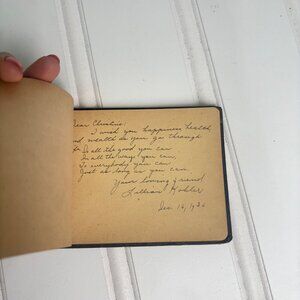 Dear Christine,
I wish you happiness health
and wealth as you go through
life
Do all the good you can
In all the ways you can
To everybody you can
Just as long as you can
Your loving friend
Lillian Kohler
Jan. 16, 1936